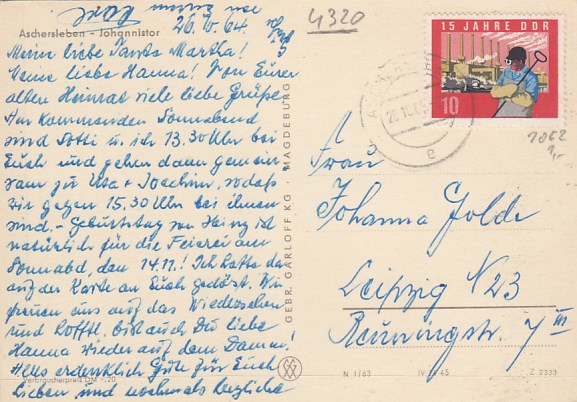 Aschersleben - Johannistor
26.10.64.
4320
Meine liebe Tante Martha!
Meine liebe Hanna! Von Eurer
alten Heimat viele liebe Grüße.
Am kommenden Sonnabend
sind Lotti u. ich 13.30 Uhr bei
Euch und gehen dann gemein-
sam zu Uta + Joachim, sodaß
wir gegen 15.30 Uhr bei ihnen
sind. - Geburtstag von Heinz ist
natürlich für die Feierei am
Sonnabd, den 14.11.! Ich hatte da
auf der Karte an Euch gedöst. Wir
freuen uns auf das Wiedersehen
und hofftl. bist auch Du liebe
Hanna wieder auf dem Damm!
Alles erdenklich Gute für Euch
Lieben und nochmals herzliche
Verbraucherpreis DM -,20
GEBR. GARLOFF KG · MAGDEBURG
15 JAHRE DDR
10
1062
1,-
Frau
Johanna Golde
Leipzig N23
Reuningstr. 7 III
N 1/63
IV-14-45
Z 2333